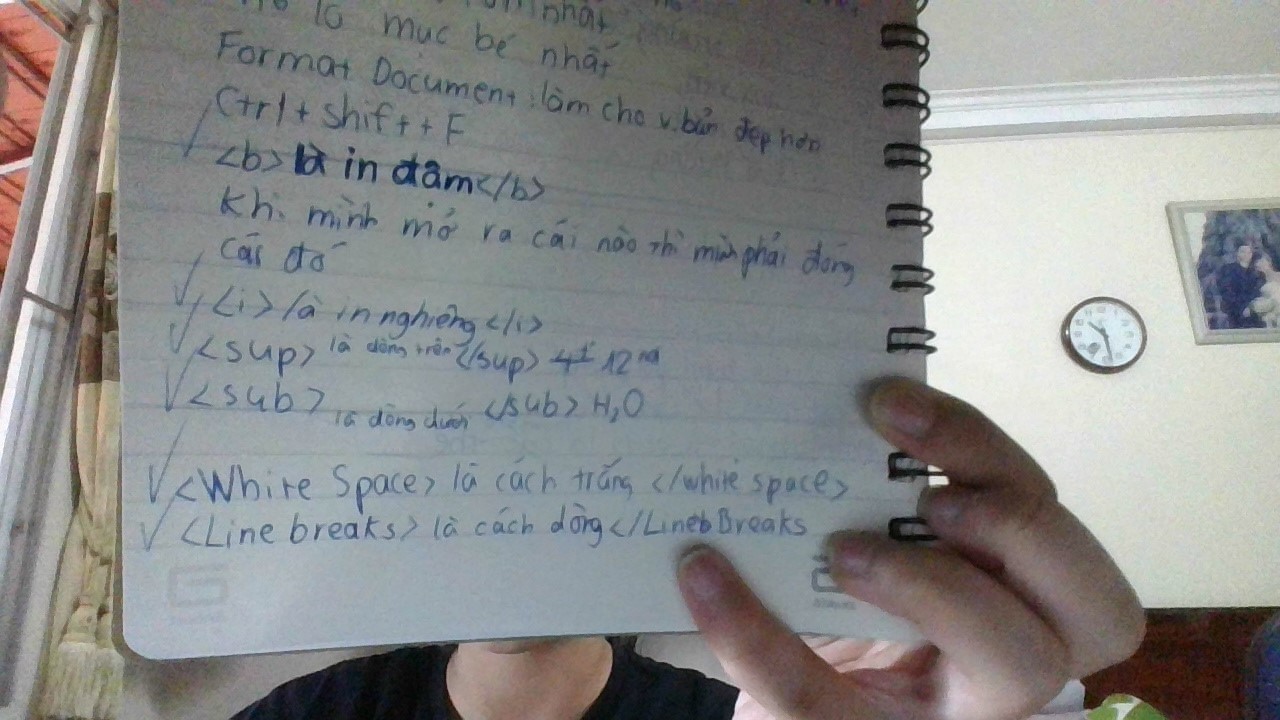 nhất
là mục bé nhất
Format Document: làm cho v.bản đẹp hơn
Ctrl + Shift + F
<b> là in đâm</b>
Khi mình mở ra cái nào thì mình phải đóng
cái đó
<i> là in nghiêng </i>
<sup> là dòng trên </sup> 12nd
<sub> là dòng dưới </sub> H2O
<White Space> là cách trắng </white space>
<Line breaks> là cách dòng </LinebBreaks